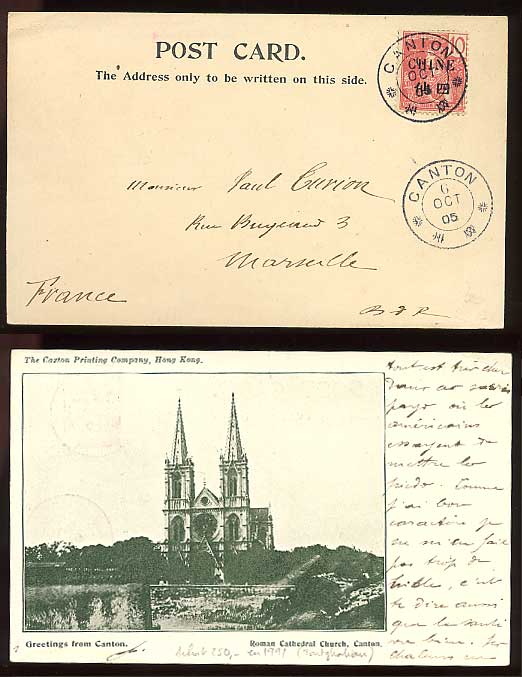 POST CARD.
The Address only to be written on this side.
10
CHINE
CANTON
OCT
05
CANTON
6
OCT
05
Monsieur Paul Curion
Rue 3
Marseille
France
The Caxton Printing Company, Hong Kong.
Greetings from Canton.
Roman Cathedral Church, Canton.
tout est très cher
dans ce
pays où les
américains
essayent de
mettre les
pieds. Comme
j'ai bon
caractère je
ne m'en fais
pas trop de
bile, c'est
te dire aussi
que la santé